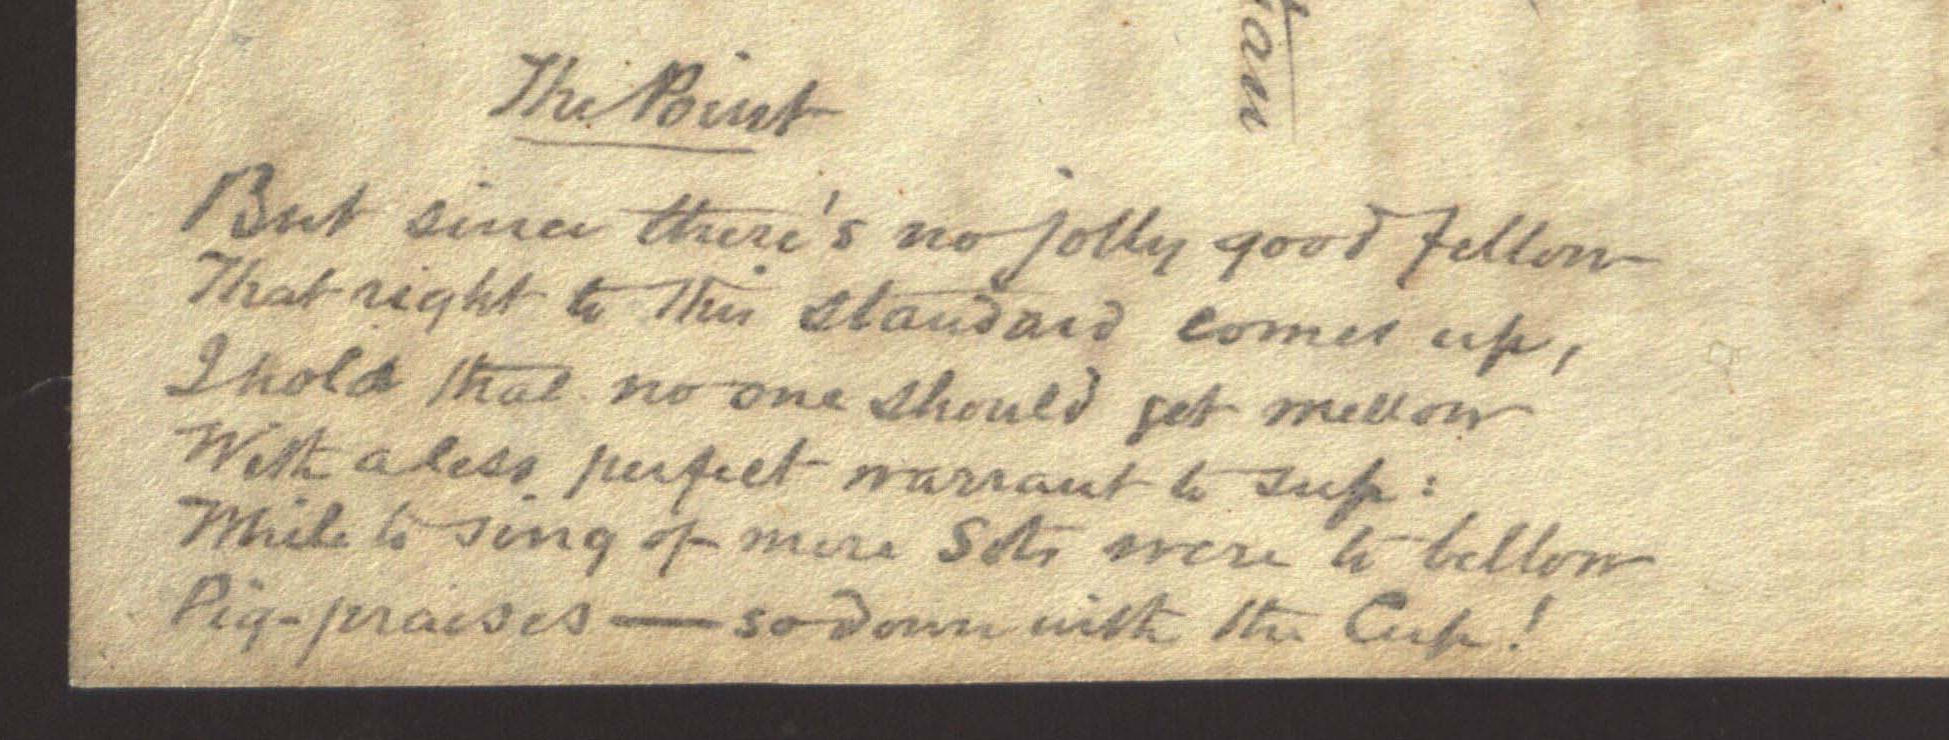 The Point
But since there's no jolly good fellow
That right to this standard comes up,
I hold that no one should get mellow
With a less perfect warrant to sup:
While to sing of mere Sots were to bellow
Pig-praises — so down with the Cup!